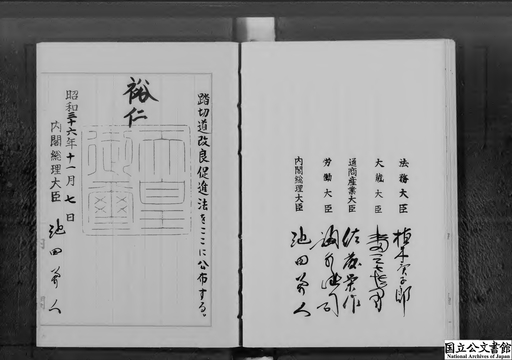 踏切道改良促進法をここに公布する。
裕仁
天皇御璽
昭和三十六年十一月七日
内閣総理大臣 池田勇人
法務大臣 植木庚子郎
大蔵大臣 水田三喜男
通商産業大臣 佐藤栄作
労働大臣 福永健司
内閣総理大臣 池田勇人
国立公文書館
National Archives of Japan